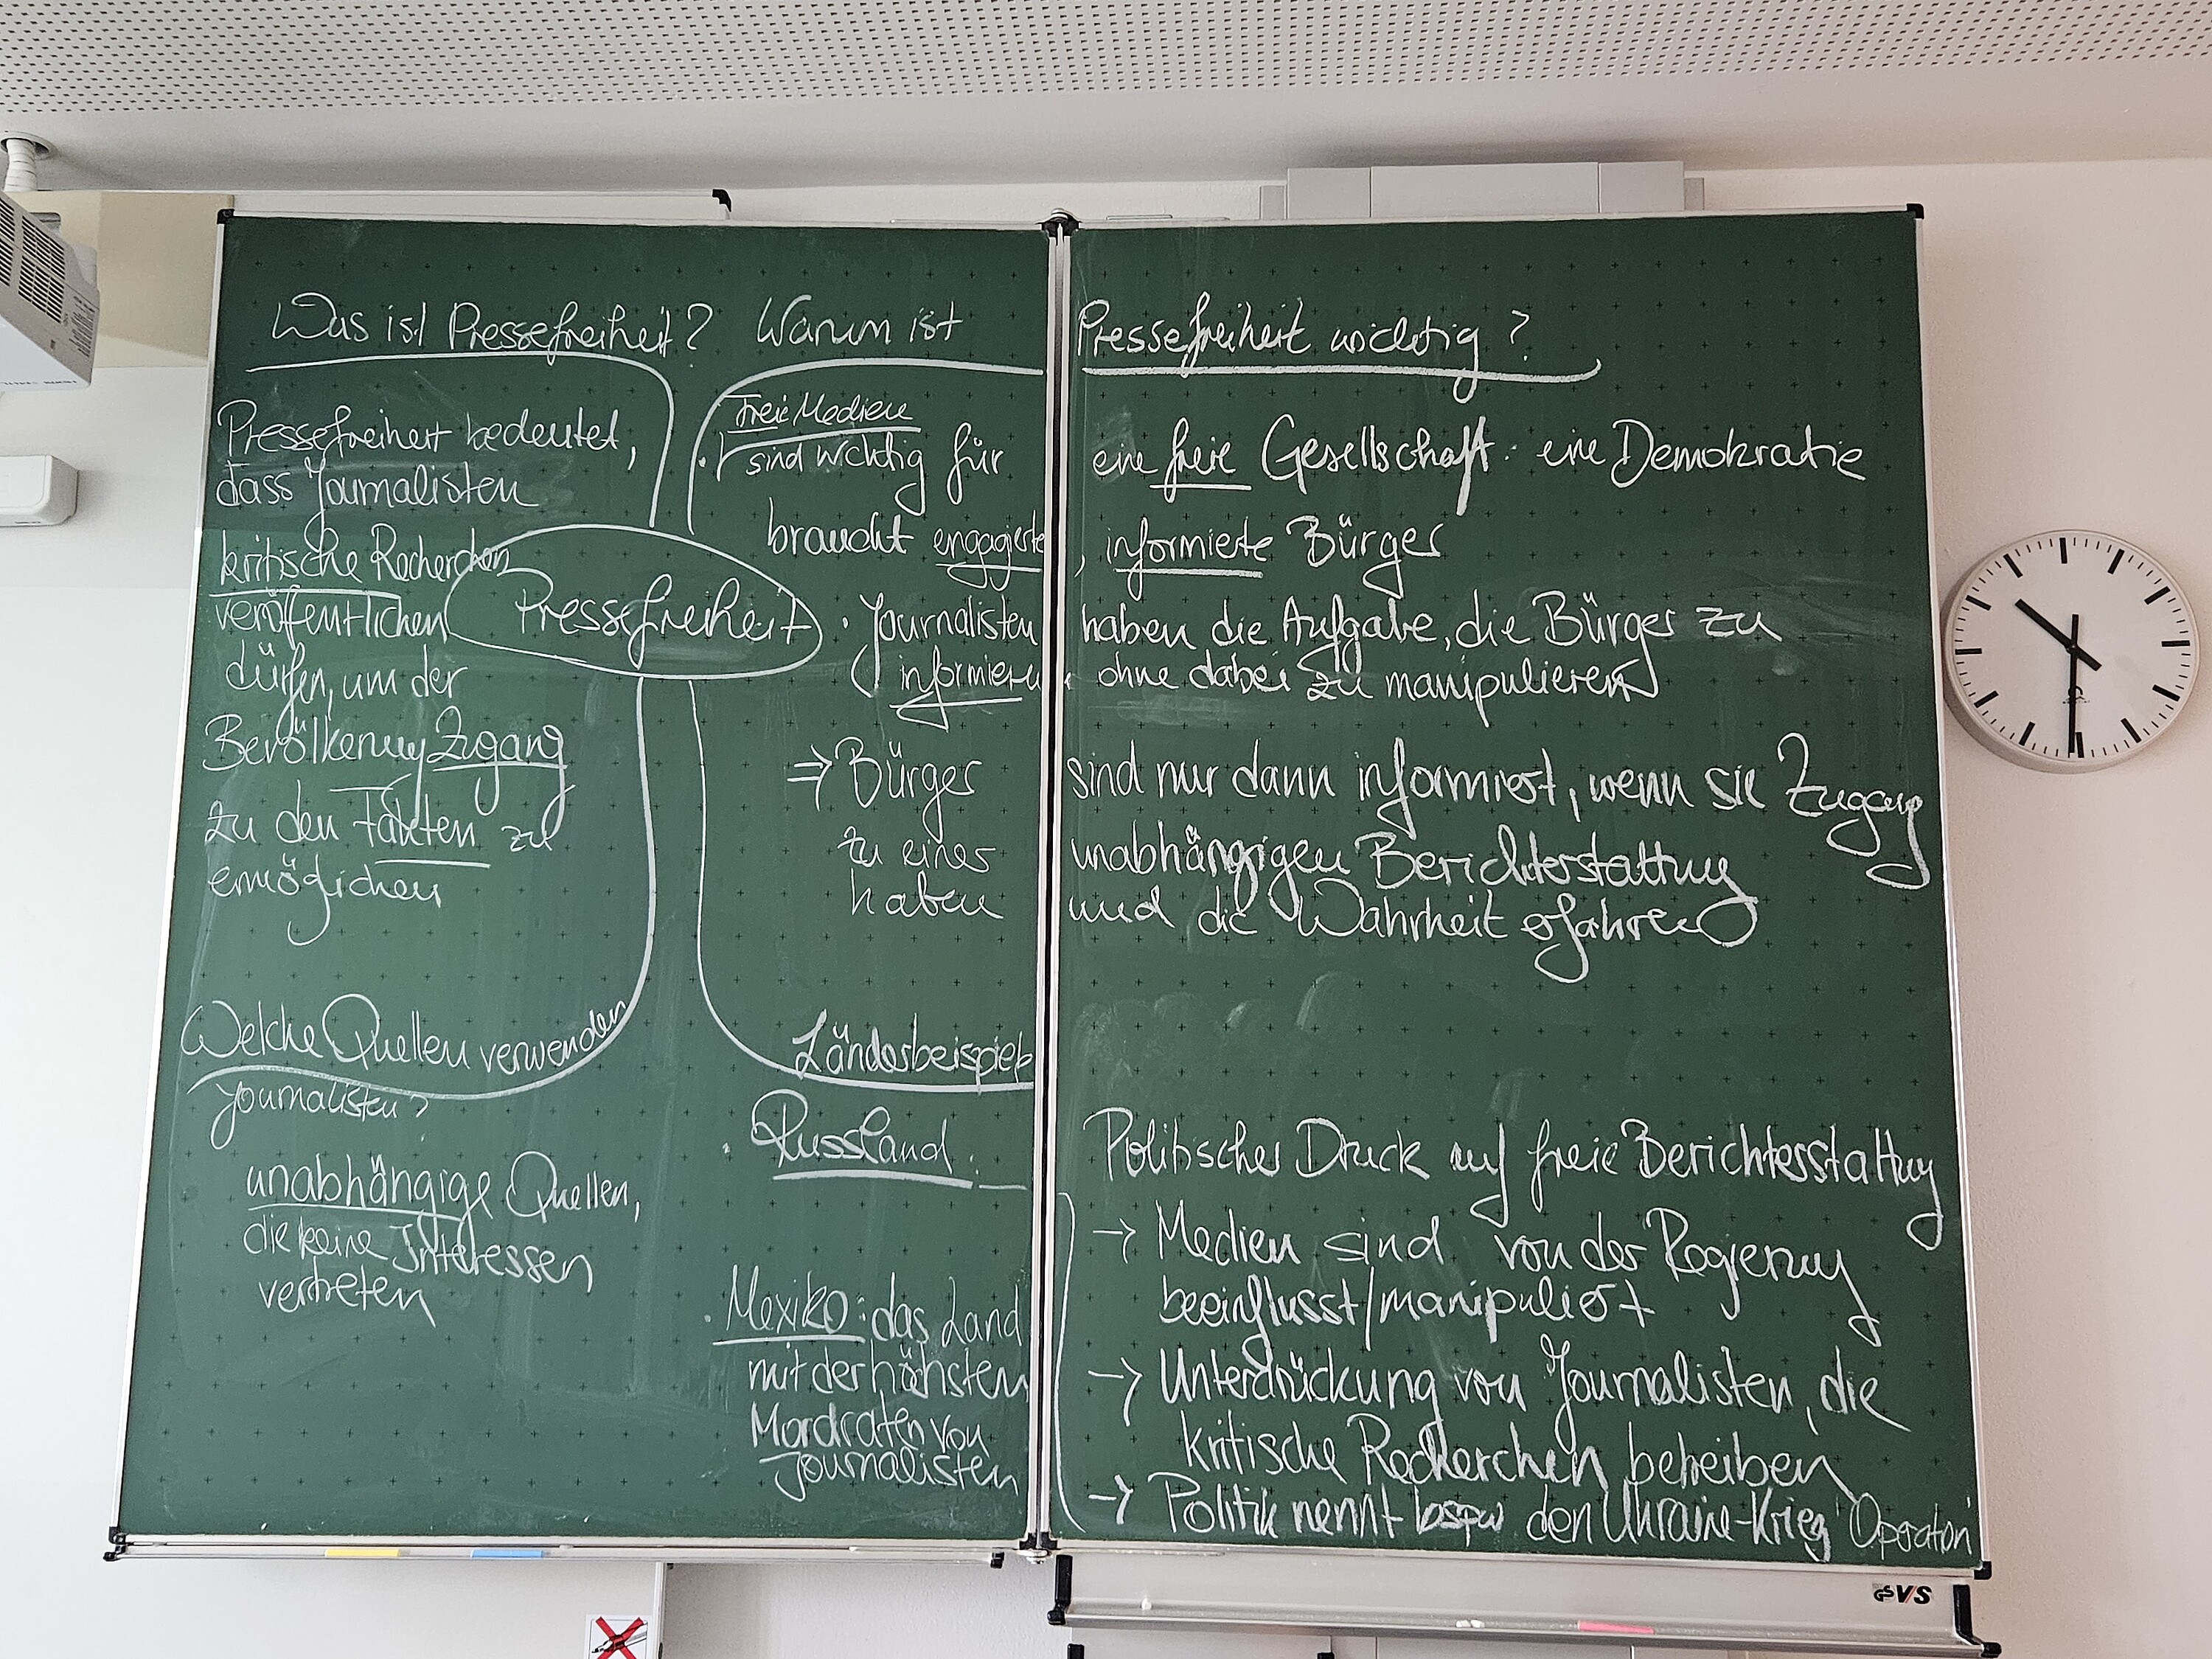 Was ist Pressefreiheit?
Pressefreiheit bedeutet,
dass Journalisten
kritische Recherchen
veröffentlichen
dürfen, um der
Bevölkerung Zugang
zu den Fakten zu
ermöglichen
Pressefreiheit
Warum ist Pressefreiheit wichtig?
Freie Medien
· sind wichtig für eine freie Gesellschaft: eine Demokratie
braucht engagierte, informierte Bürger
· Journalisten haben die Aufgabe, die Bürger zu
informieren, ohne dabei zu manipulieren
⇒ Bürger sind nur dann informiert, wenn sie Zugang
zu einer unabhängigen Berichterstattung
haben und die Wahrheit erfahren
Welche Quellen verwenden
Journalisten?
unabhängige Quellen,
die keine Interessen
vertreten
Länderbeispiele
· Russland: Politischer Druck auf freie Berichtesstattung
→ Medien sind von der Regierung
beeinflusst/manipuliert
→ Unterdrückung von Journalisten, die
kritische Recherchen betreiben
→ Politik nennt bspw den Ukraine-Krieg 'Operation'
· Mexiko: das Land
mit der höhsten
Mordraten von
Journalisten
GS VS